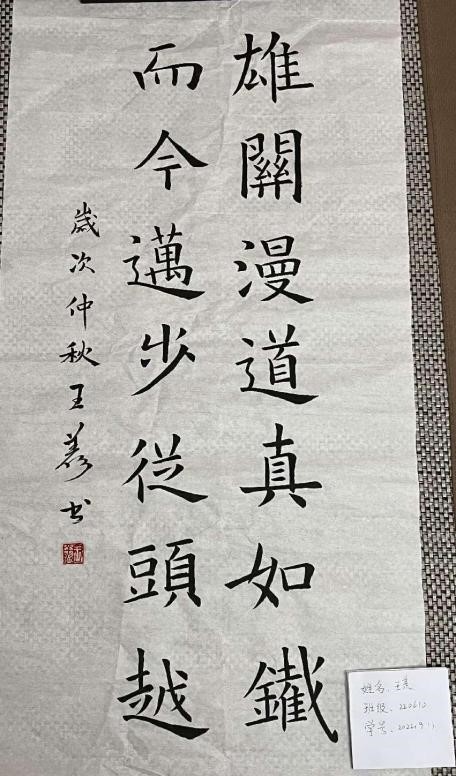 雄關漫道真如鐵
而今邁步從頭越
歲次仲秋王羲书
姓名、王羲
班级、220612
学号、